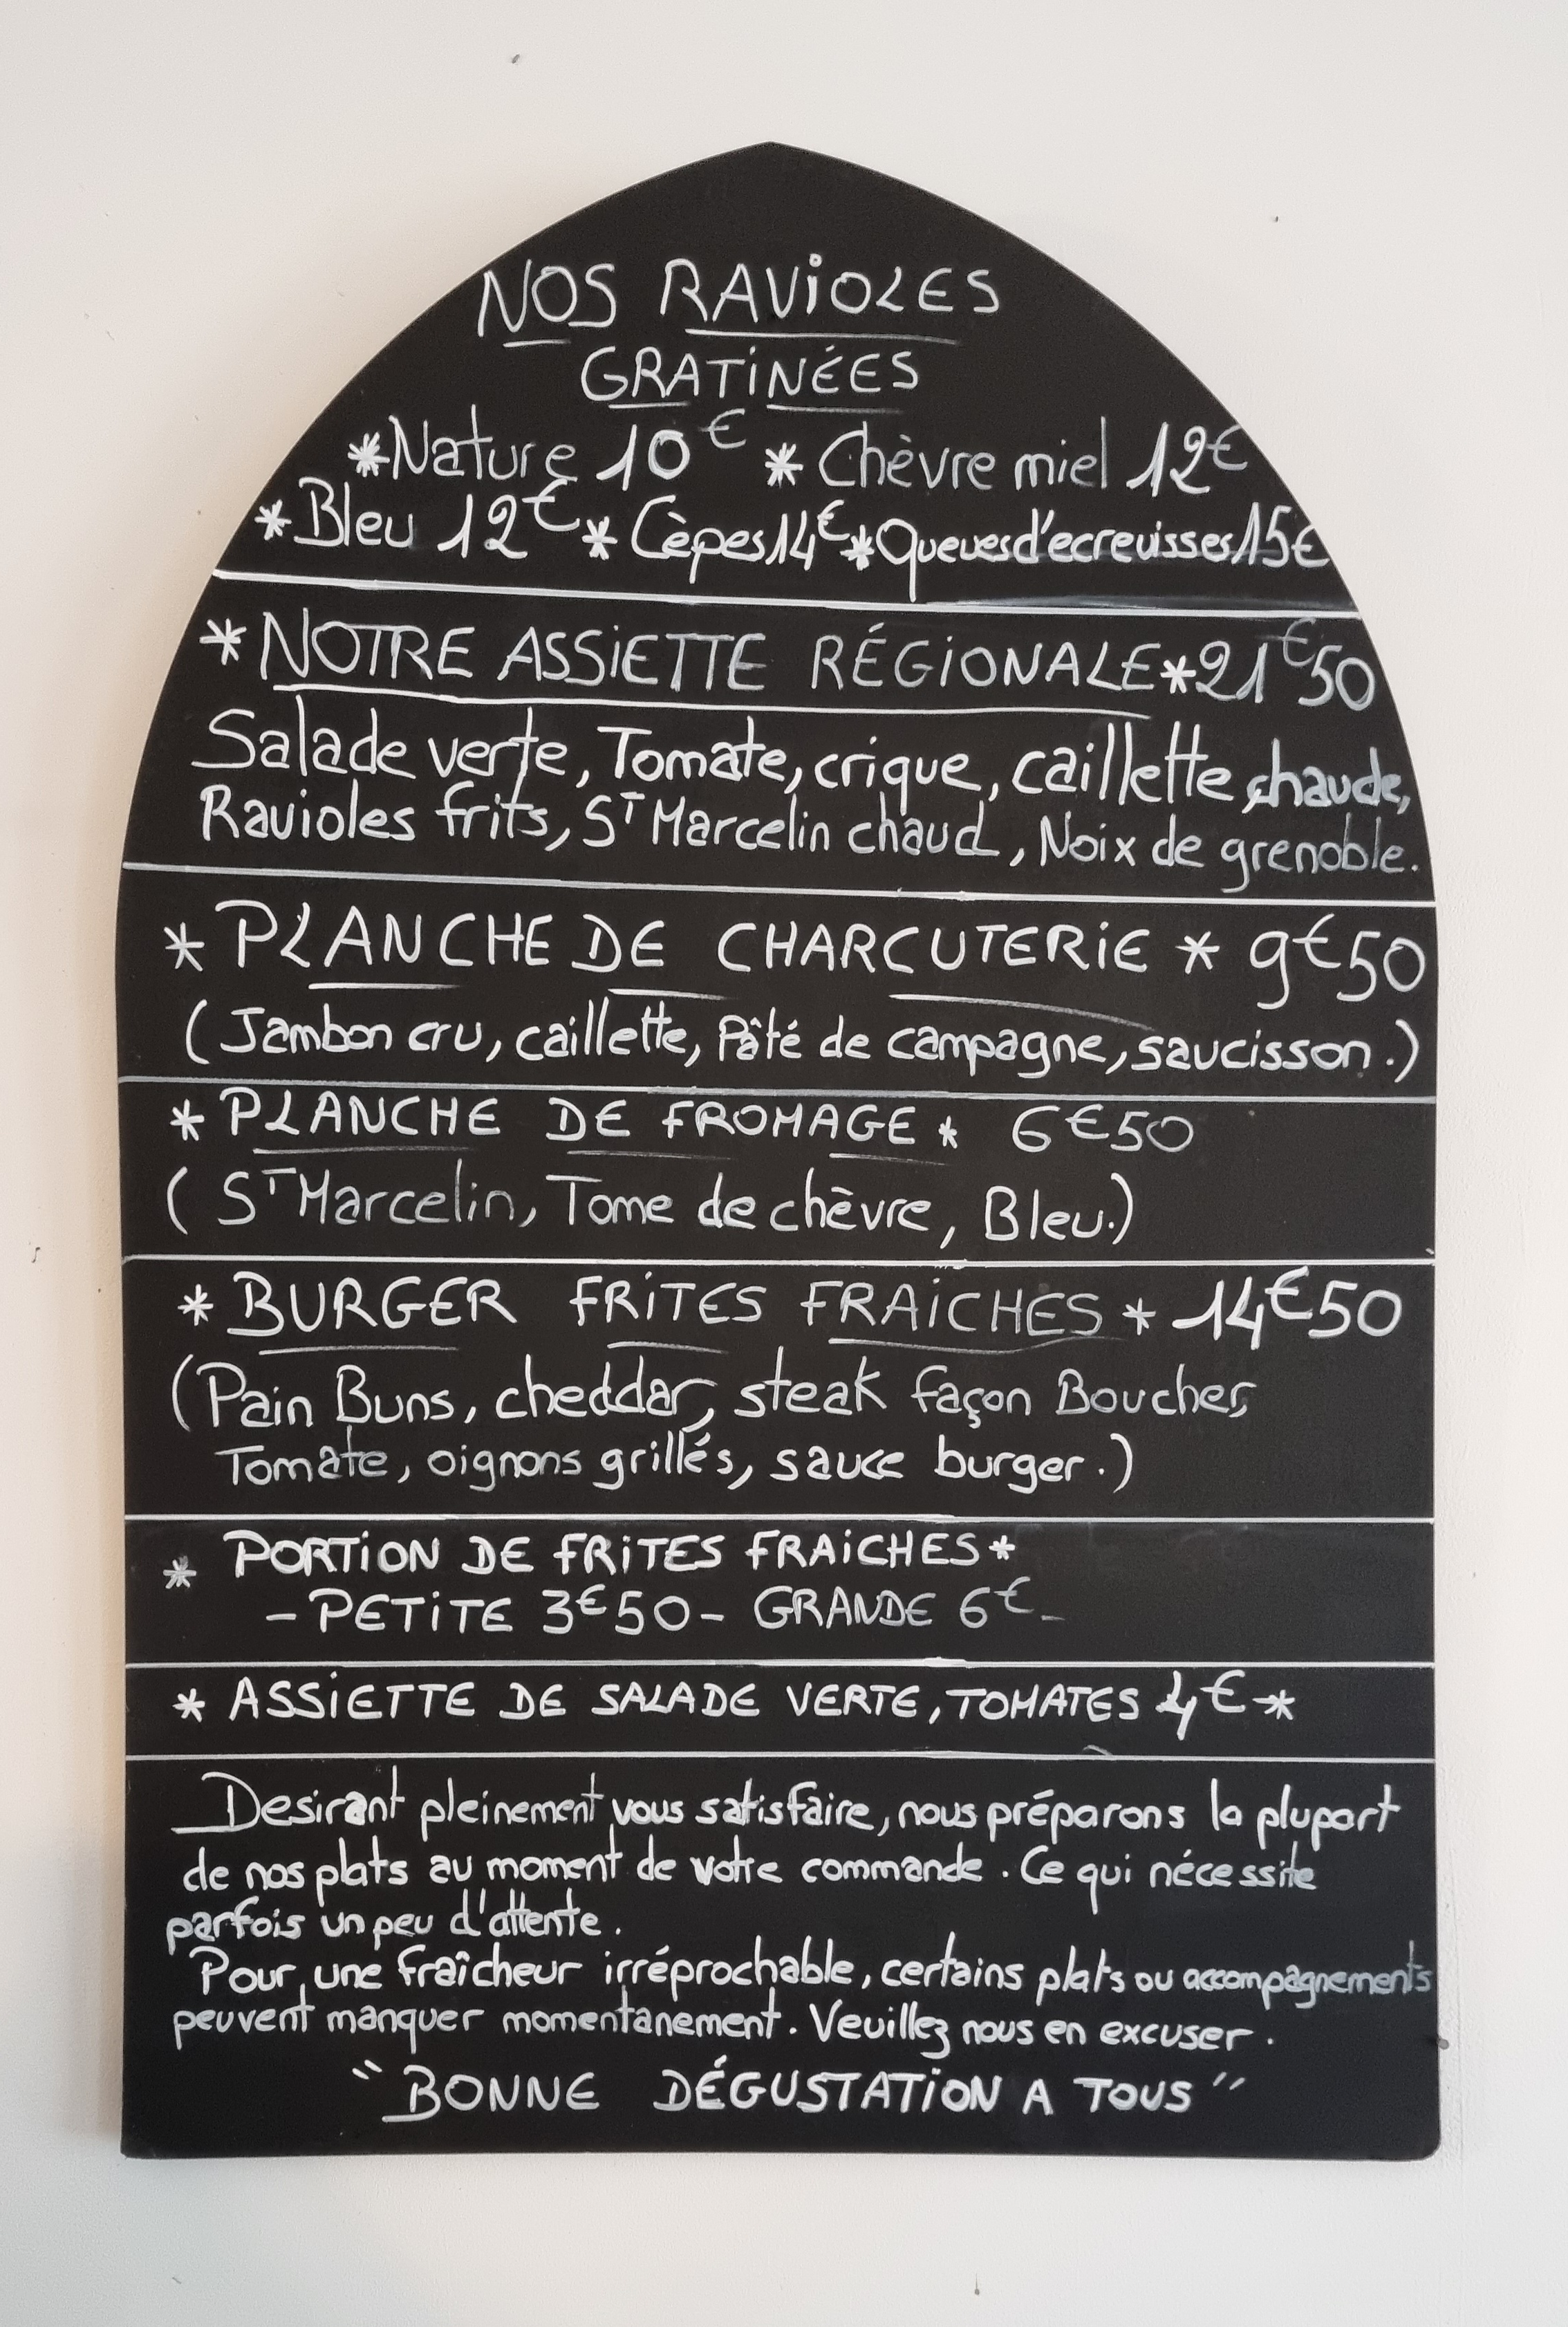 NOS RAVIOLES
GRATINÉES
*Nature 10€ * Chèvre miel 12€
*Bleu 12€ * Cèpes 14€ * Queues d'ecrevisses 15€
*NOTRE ASSIETTE RÉGIONALE * 21€50
Salade verte, Tomate, crique, caillette chaude,
Ravioles frits, ST Marcelin chaud, Noix de grenoble.
* PLANCHE DE CHARCUTERIE * 9€50
(Jambon cru, caillette, Pâté de campagne, saucisson.)
* PLANCHE DE FROMAGE * 6€50
( ST Marcelin, Tome de chèvre, Bleu.)
* BURGER FRITES FRAICHES * 14€50
(Pain Buns, cheddar, steak façon Boucher,
Tomate, oignons grillés, sauce burger.)
* PORTION DE FRITES FRAICHES *
- PETITE 3€50 - GRANDE 6€ -
* ASSIETTE DE SALADE VERTE, TOMATES 4€ *
Desirant pleinement vous satisfaire, nous préparons la plupart
de nos plats au moment de votre commande. Ce qui nécessite
parfois un peu d'attente.
Pour une fraîcheur irréprochable, certains plats ou accompagnements
peuvent manquer momentanement. Veuillez nous en excuser.
"BONNE DÉGUSTATION A TOUS"